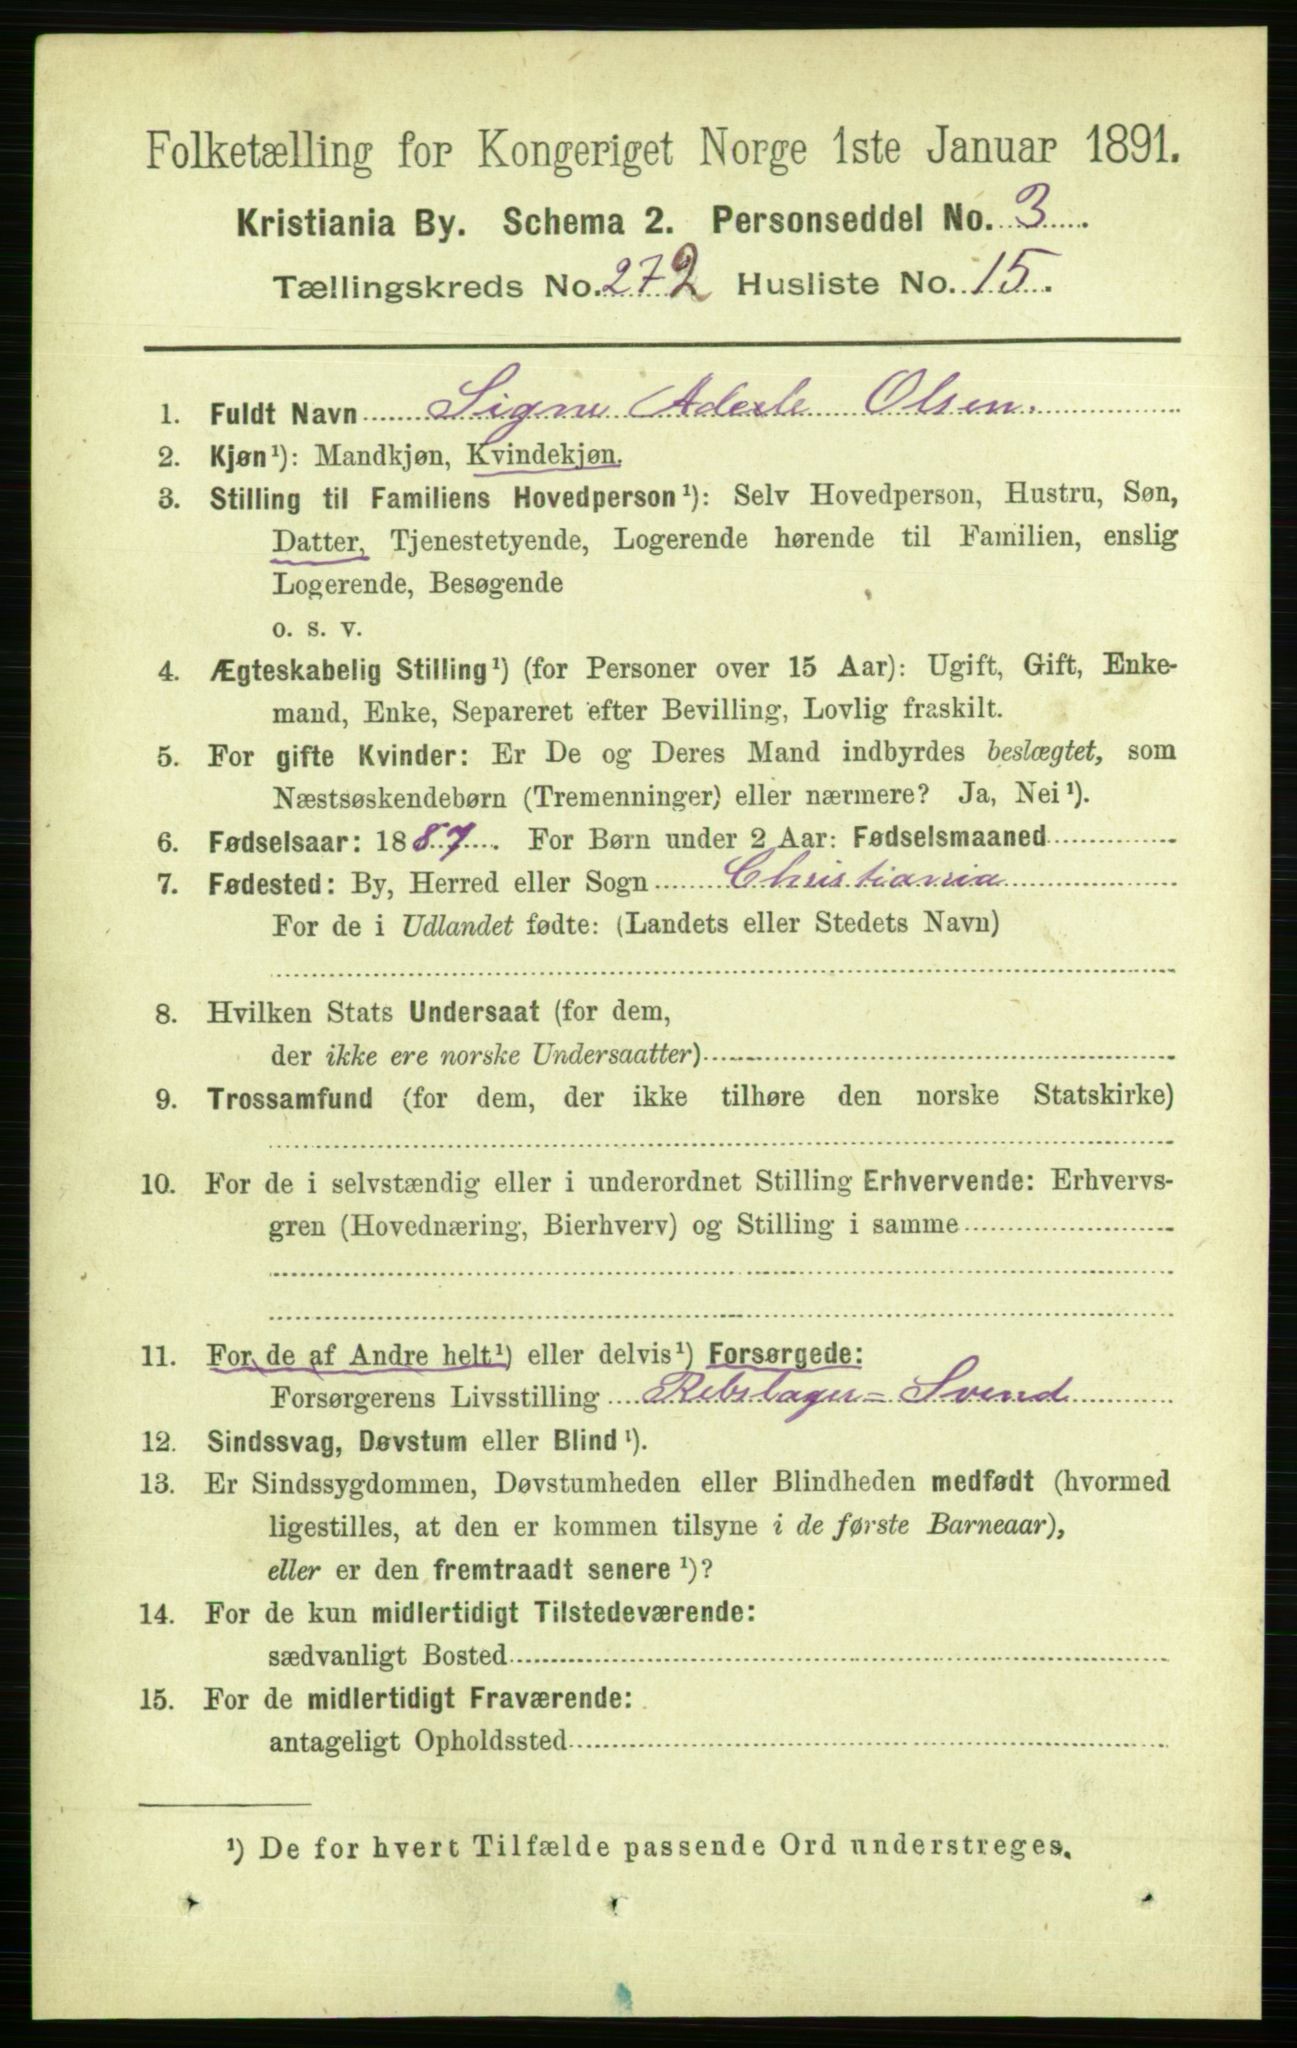 Folketælling for Kongeriget Norge 1ste Januar 1891.
Kristiania By. Schema 2. Personseddel No. 3
Tællingskreds No. 272 Husliste No. 15.
1. Fuldt Navn Signe Adele Olsen.
2. Kjøn¹): Mandkjøn, Kvindekjøn.
3. Stilling til Familiens Hovedperson¹): Selv Hovedperson, Hustru, Søn,
Datter, Tjenestetyende, Logerende hørende til Familien, enslig
Logerende, Besøgende
o. s. v.
4. Ægteskabelig Stilling¹) (for Personer over 15 Aar): Ugift, Gift, Enke-
mand, Enke, Separeret efter Bevilling, Lovlig fraskilt.
5. For gifte Kvinder: Er De og Deres Mand indbyrdes beslægtet, som
Næstsøskendebørn (Tremenninger) eller nærmere? Ja, Nei¹).
6. Fødselsaar: 1887. For Børn under 2 Aar: Fødselsmaaned
7. Fødested: By, Herred eller Sogn Christiania
For de i Udlandet fødte: (Landets eller Stedets Navn)
8. Hvilken Stats Undersaat (for dem,
der ikke ere norske Undersaatter)
9. Trossamfund (for dem, der ikke tilhøre den norske Statskirke)
10. For de i selvstændig eller i underordnet Stilling Erhvervende: Erhvervs-
gren (Hovednæring, Bierhverv) og Stilling i samme
11. For de af Andre helt¹) eller delvis¹) Forsørgede:
Forsørgerens Livsstilling Rebslager=Svend
12. Sindssvag, Døvstum eller Blind¹).
13. Er Sindssygdommen, Døvstumheden eller Blindheden medfødt (hvormed
ligestilles, at den er kommen tilsyne i de første Barneaar),
eller er den fremtraadt senere¹)?
14. For de kun midlertidigt Tilstedeværende:
sædvanligt Bosted
15. For de midlertidigt Fraværende:
antageligt Opholdssted
¹) De for hvert Tilfælde passende Ord understreges.